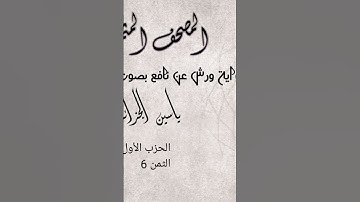 المصحف الم
اية ورش عن نافع بصوت
ياسين الجزائ
الحزب الأول
الثمن 6